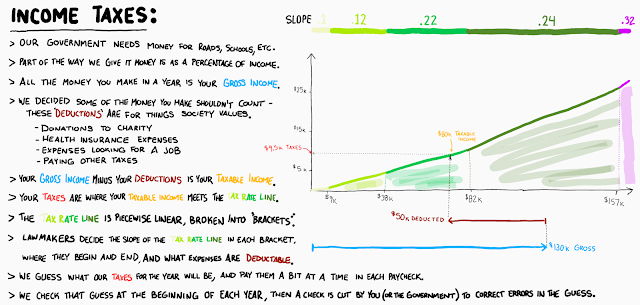 INCOME TAXES:
> OUR GOVERNMENT NEEDS MONEY FOR ROADS, SCHOOLS, ETC.
> PART OF THE WAY WE GIVE IT MONEY IS AS A PERCENTAGE OF INCOME.
> ALL THE MONEY YOU MAKE IN A YEAR IS YOUR GROSS INCOME.
> WE DECIDED SOME OF THE MONEY YOU MAKE SHOULDN'T COUNT -
THESE 'DEDUCTIONS' ARE FOR THINGS SOCIETY VALUES.
- DONATIONS TO CHARITY
- HEALTH INSURANCE EXPENSES
- EXPENSES LOOKING FOR A JOB
- PAYING OTHER TAXES
> YOUR GROSS INCOME MINUS YOUR DEDUCTIONS IS YOUR TAXABLE INCOME.
> YOUR TAXES ARE WHERE YOUR TAXABLE INCOME MEETS THE TAX RATE LINE.
> THE TAX RATE LINE IS PIECEWISE LINEAR, BROKEN INTO 'BRACKETS'.
> LAWMAKERS DECIDE THE SLOPE OF THE TAX RATE LINE IN EACH BRACKET,
WHERE THEY BEGIN AND END, AND WHAT EXPENSES ARE DEDUCTABLE.
> WE GUESS WHAT OUR TAXES FOR THE YEAR WILL BE, AND PAY THEM A BIT AT A TIME IN EACH PAYCHECK.
> WE CHECK THAT GUESS AT THE BEGINNING OF EACH YEAR, THEN A CHECK IS CUT BY YOU (OR THE GOVERNMENT) TO CORRECT ERRORS IN THE GUESS.
SLOPE .1 .12 .22 .24 .32
$25K
$15K
$80K TAXABLE INCOME
$9.5K TAXES
$5K
$9K $38K $82K $157K
$50K DEDUCTED
$130K GROSS